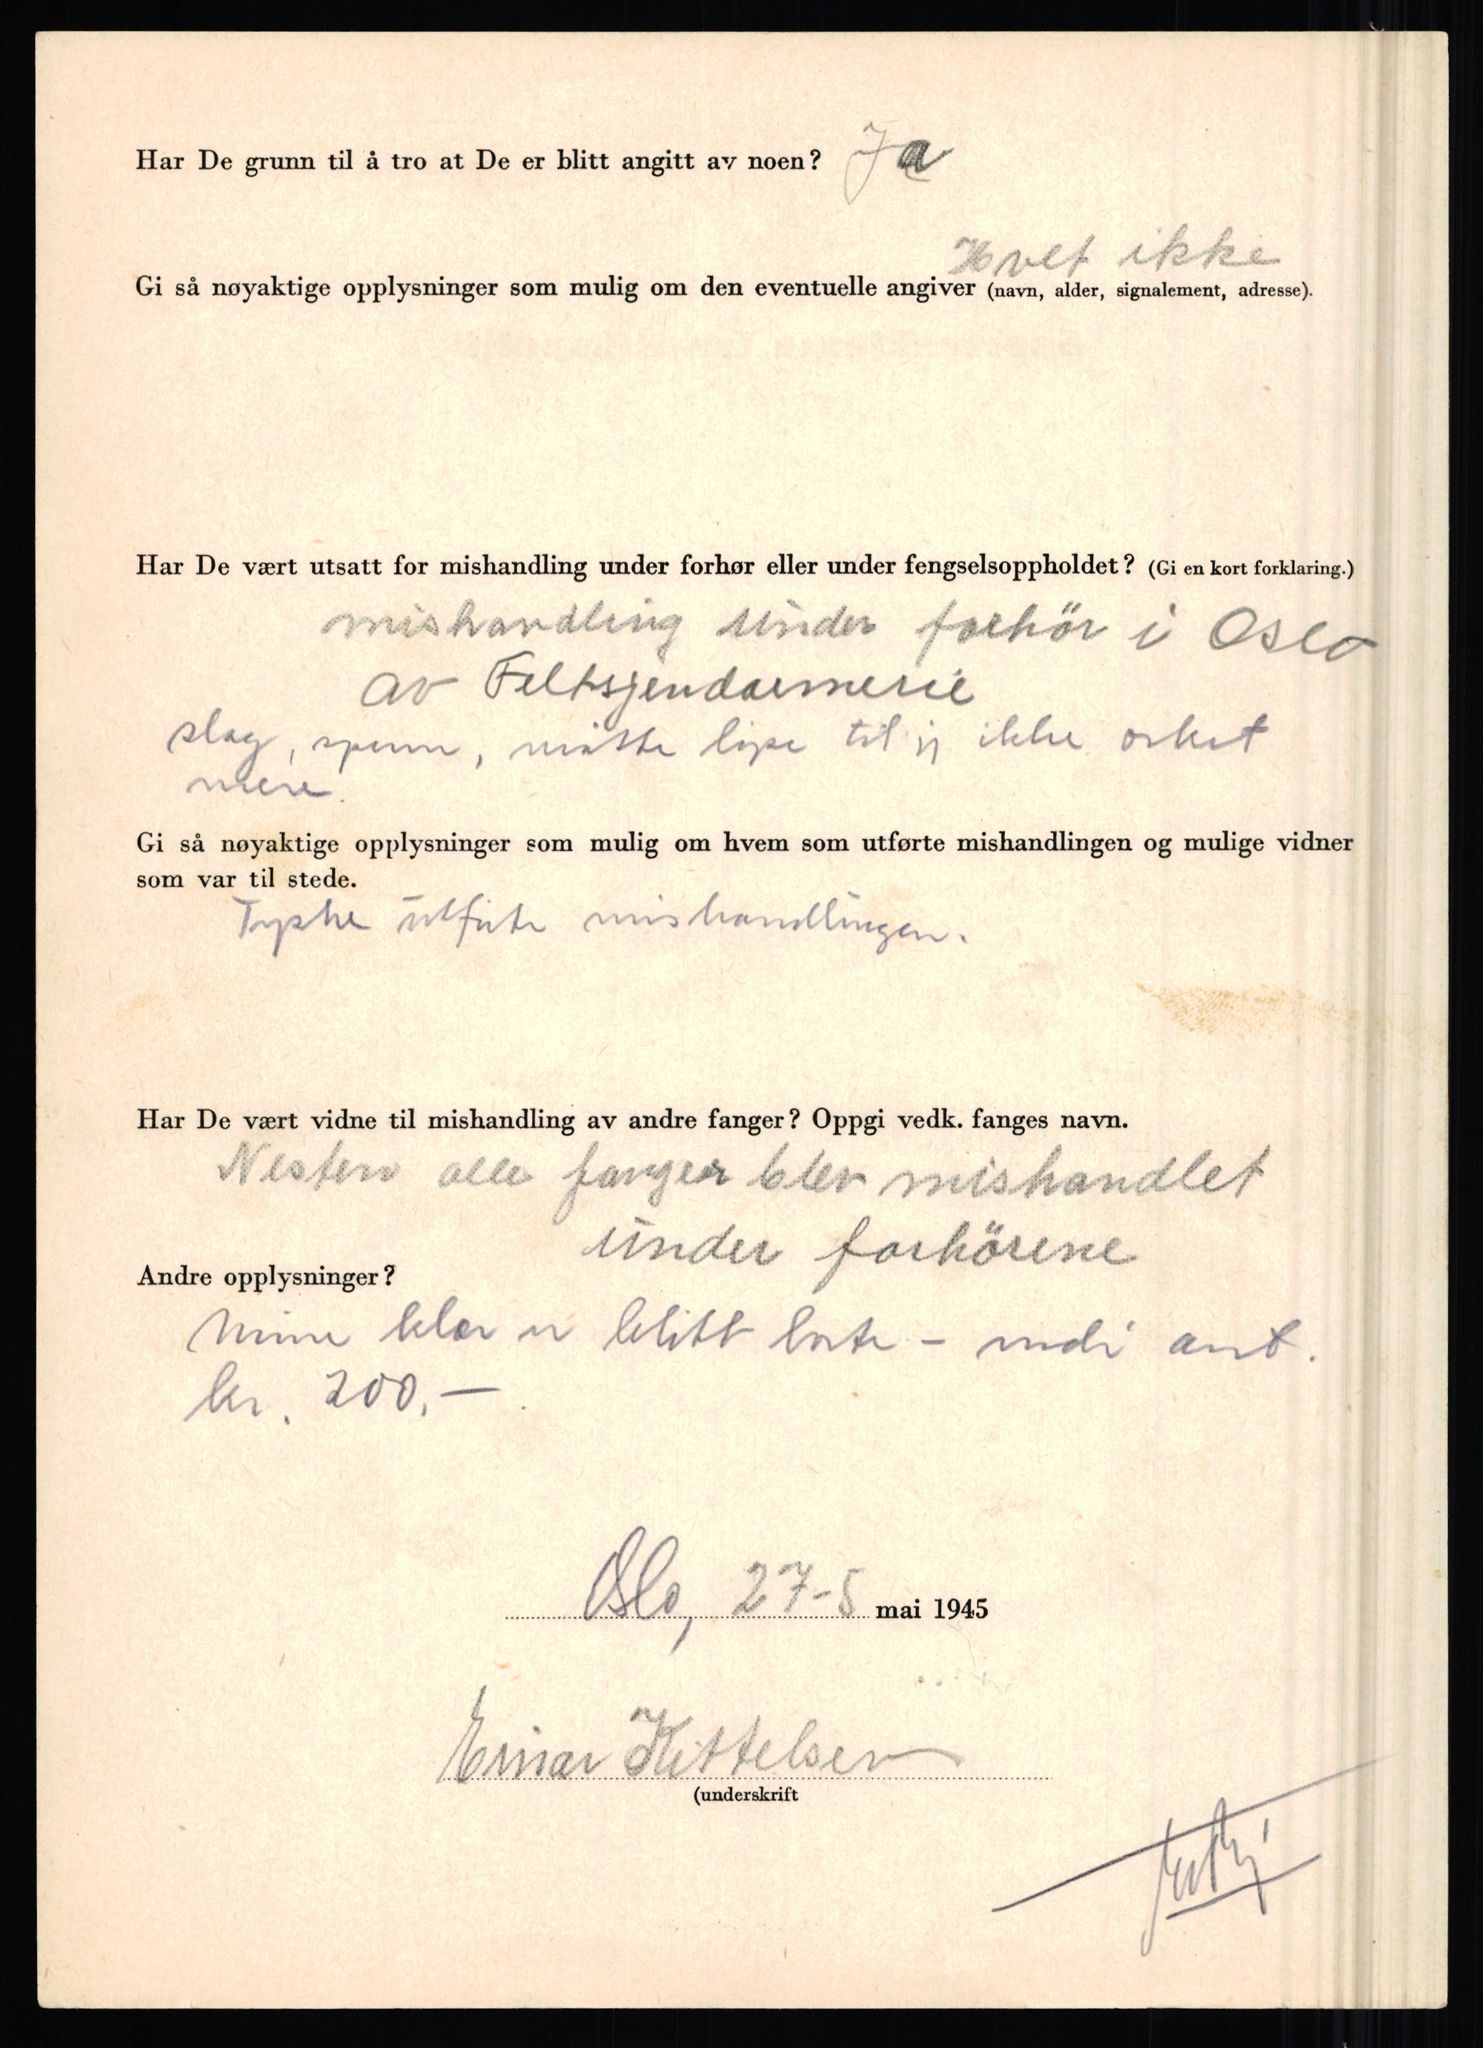 Har De grunn til å tro at De er blitt angitt av noen? Ja
Hvet ikke
Gi så nøyaktige opplysninger som mulig om den eventuelle angiver (navn, alder, signalement, adresse).
Har De vært utsatt for mishandling under forhør eller under fengselsoppholdet? (Gi en kort forklaring.)
mishandling under forhör i Oslo
av Feltsjendarmerie
slag, spenn, måtte løpe til jeg ikke orket
mere.
Gi så nøyaktige opplysninger som mulig om hvem som utførte mishandlingen og mulige vidner
som var til stede.
Tyske utførte mishandlingen.
Har De vært vidne til mishandling av andre fanger? Oppgi vedk. fanges navn.
Nesten alle fanger blev mishandlet
under forhörene
Andre opplysninger?
Mine klær er blitt borte – verdi ant.
kr. 200,–
Oslo, 27-5 mai 1945
Einar Kittelsen
(underskrift